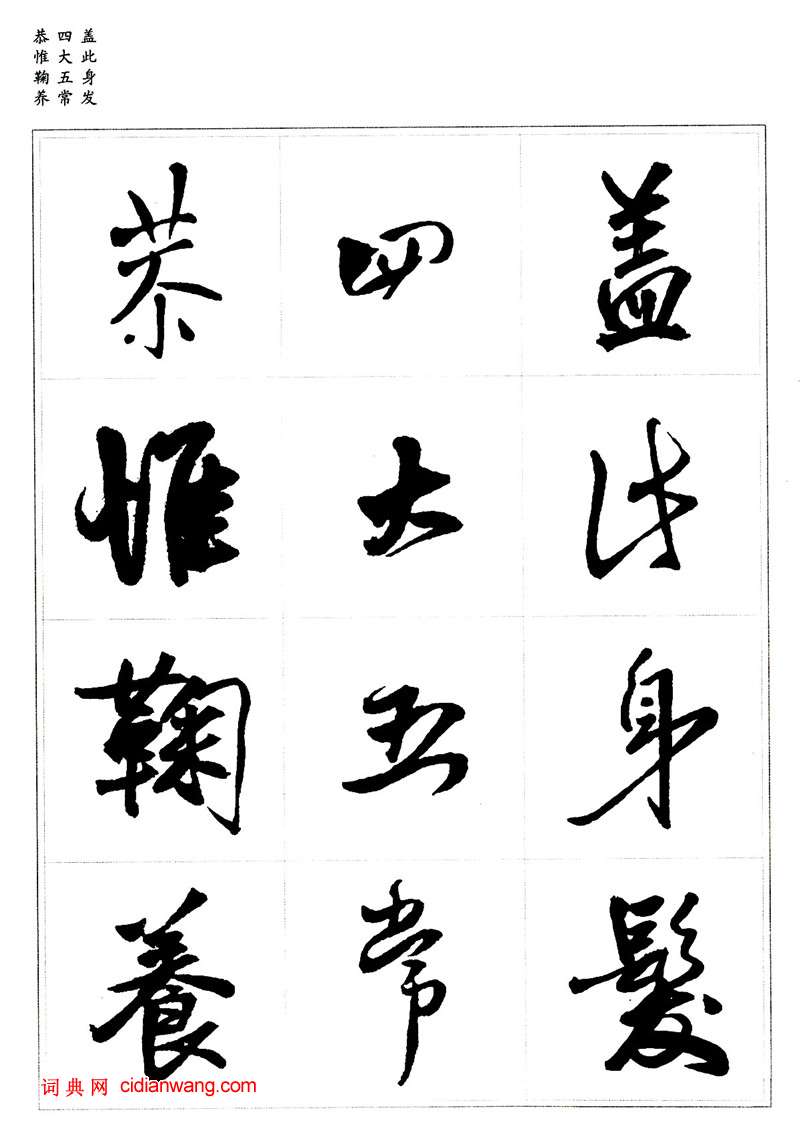 盖此身发
四大五常
恭惟鞠养
盖此身髮
四大五常
恭惟鞠養
词典网 cidianwang.com